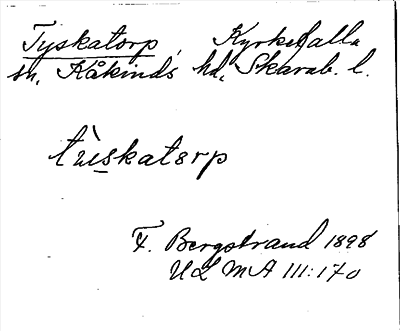 Tyskatorp, Kyrkefalla
sn, Kåkinds hd, Skarab. l.
tùskatorp
F. Bergstrand 1898
ULMA 111:170